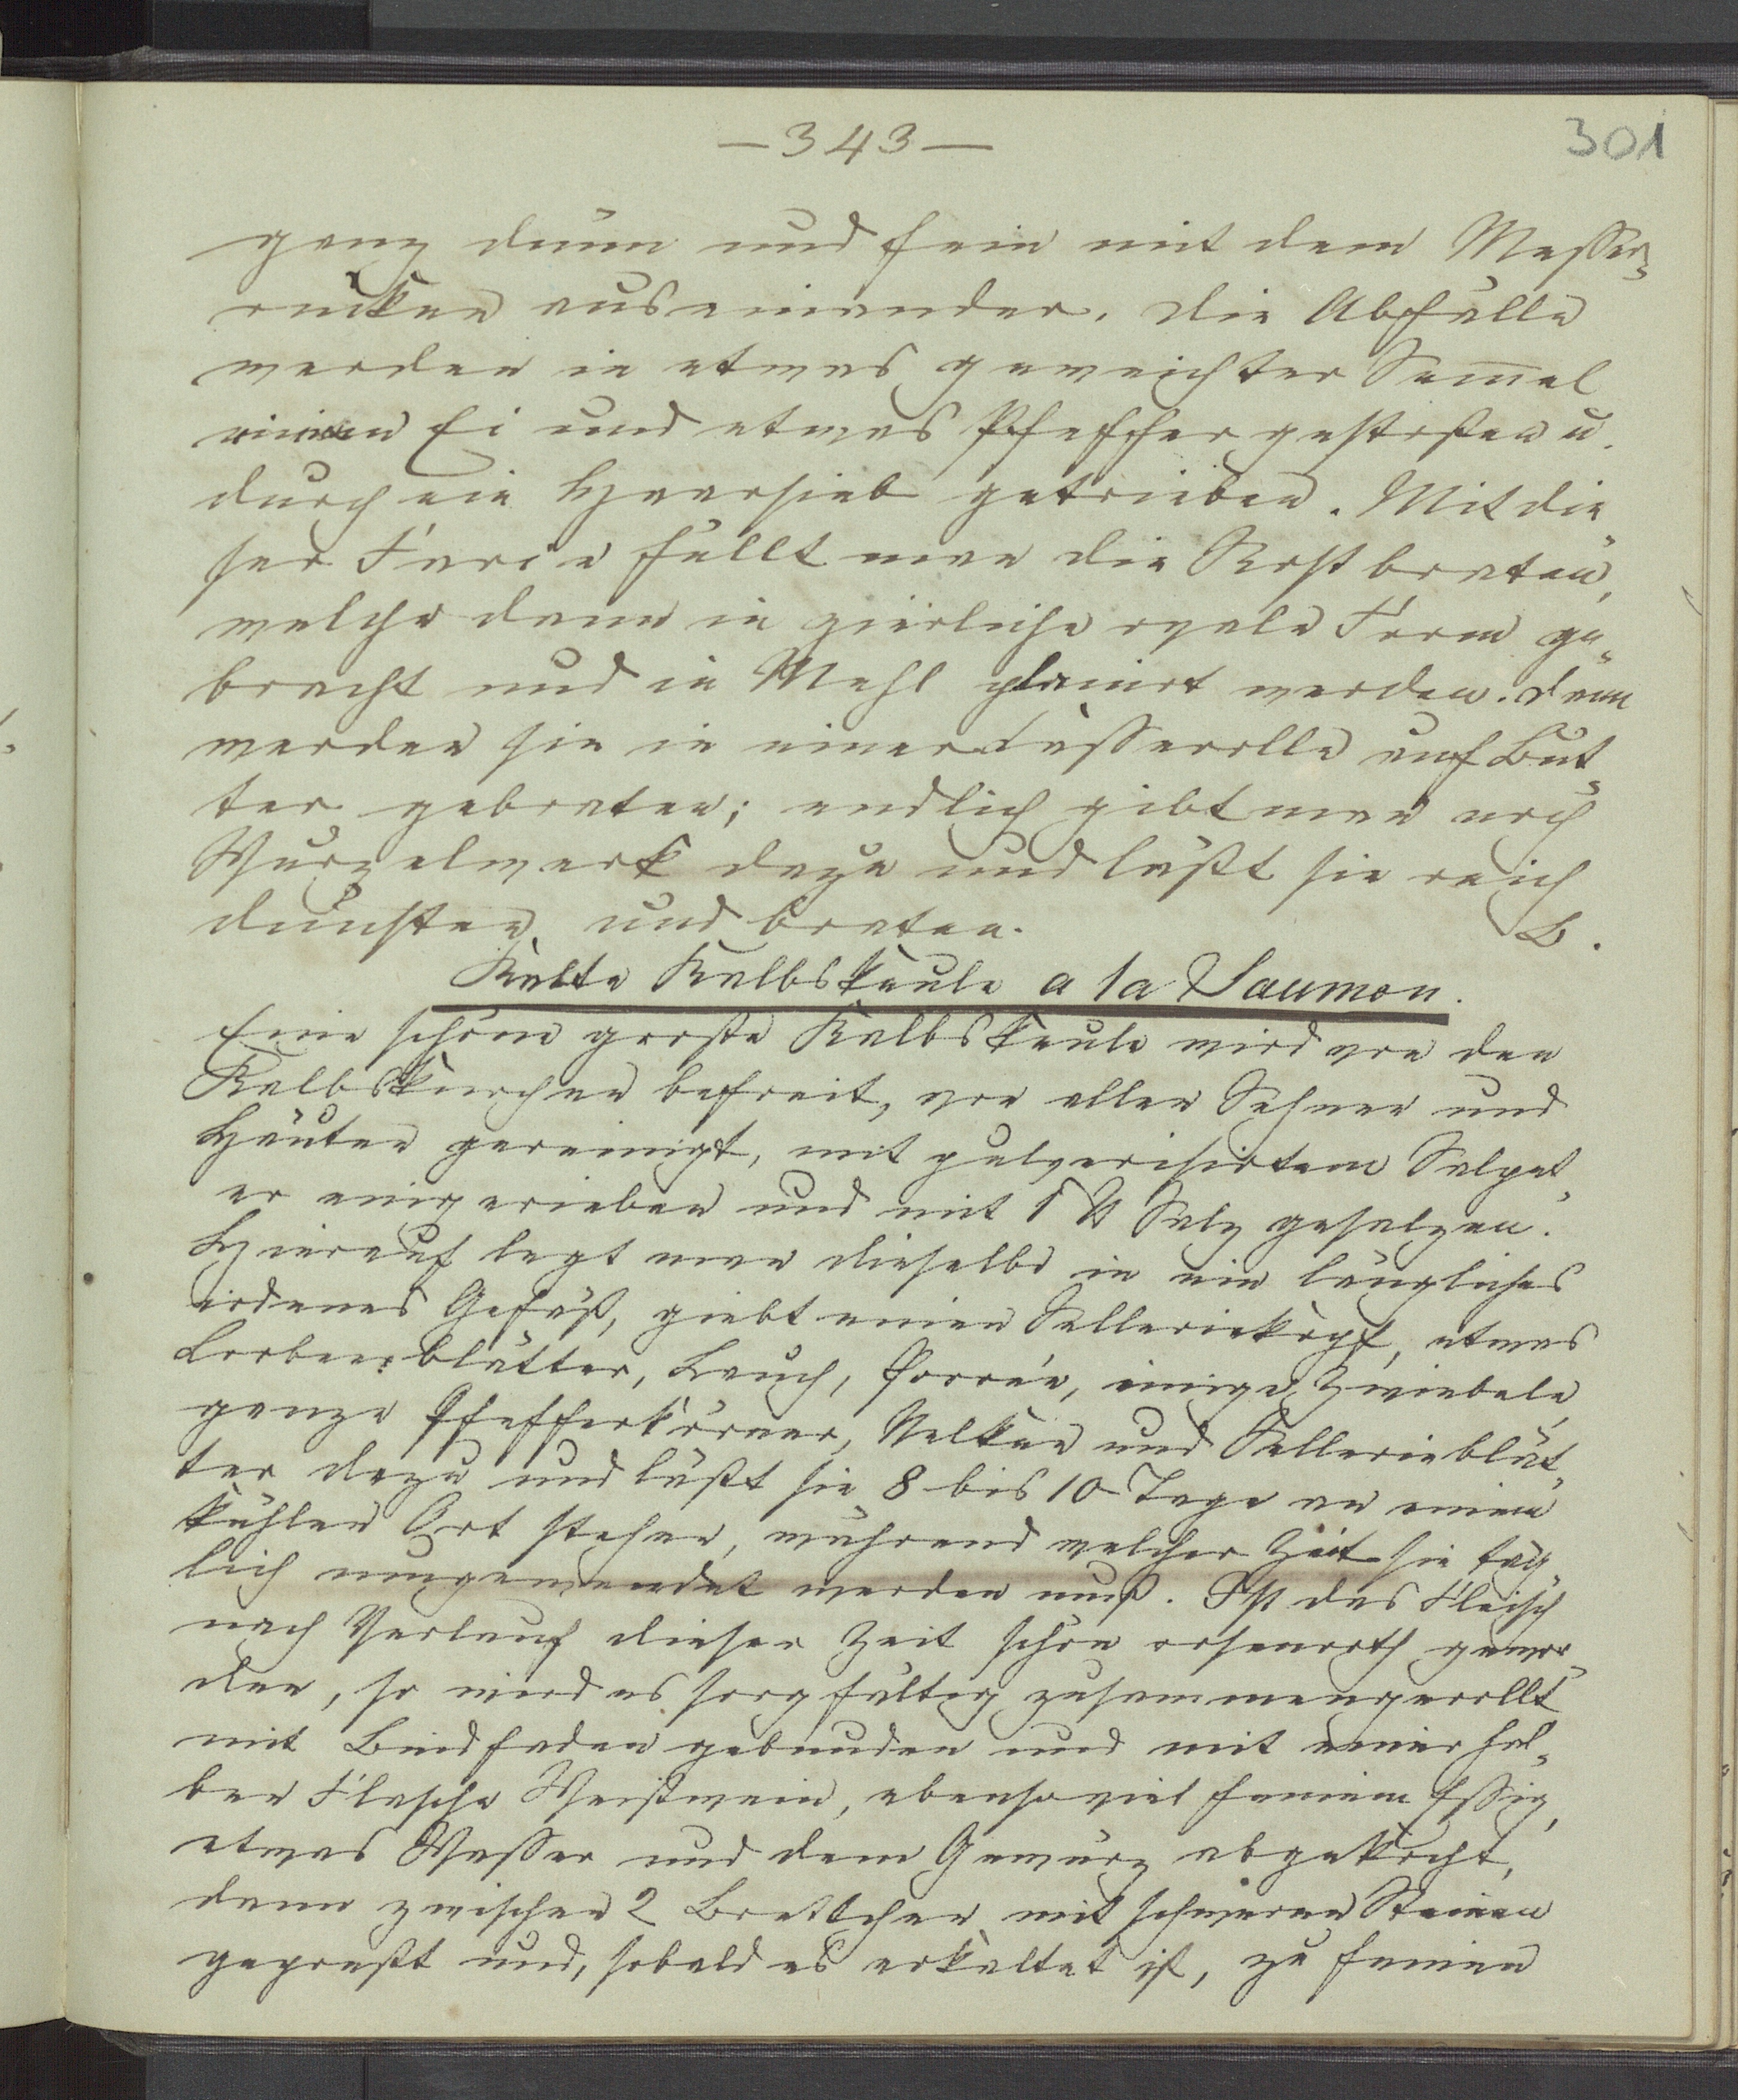 —343—
301
ganz dünn und fein mit dem Messer-
rücken auseinander. Die Abfälle
werden in etwas geweichter Sem̄el
einem Ei und etwas Pfeffer gestoßen u.
durch ein Haarsieb getrieben. Mit die
ser Farce füllt man die Rostbraten,
welche dann in zierliche ovale Form ge-
bracht und in Mehl planirt werden. Dann
werden sie in einer Casserolle auf But-
ter gebraten; endlich gibt man noch
Wurzelwerk dazu und läßt sie reich
dünsten und braten. B.
Kalte Kalbskeule a la Saumon.
Eine schöne große Kalbskeule wird von den
Kalbsknochen befreit, von allen Sehnen und
Häuten gereinigt, mit pulverisirtem Salpet-
er eingerieben und mit 1 ℔ Salz gesalzen.
Hierauf legt man dieselbe in ein längliches
irdenes Gefäß, giebt einen Selleriekopf, etwas
Lorbeerblätter, Lauch, Porrée, einige Zwiebeln,
ganze Pfefferkörner, Nelken und Sellerieblät-
ter dazu und läßt sie 8 bis 10 Tage an einem
kühlen Ort stehen, während welcher Zeit sie täg-
lich umgewendet werden muß. Ist das Fleisch
nach Verlauf dieser Zeit schön rosenroth gewor-
den, so wird es sorgfältig zusammengerollt
mit Bindfaden gebunden und mit einer hal-
ben Flasche Weißwein, ebensoviel feinem Essig,
etwas Wasser und dem Gewürz abgekocht,
dann zwischen 2 Brettchen mit schweren Steinen
gepreßt und, sobald es erkaltet ist, zu feinen